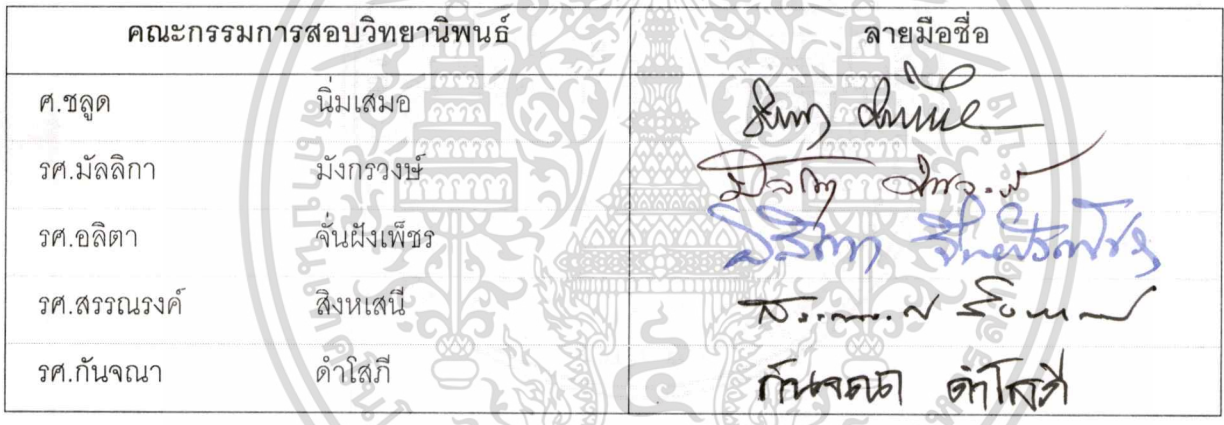 คณะกรรมการสอบวิทยานิพนธ์ ลายมือชื่อ
ศ.ชลูด นิ่มเสมอ
รศ.มัลลิกา มังกรวงษ์
รศ.อลิตา จั่นฝังเพ็ชร
รศ.สรรณรงค์ สิงหเสนี
รศ.กันจณา ดำโสภี กันจณา ดำโสภี